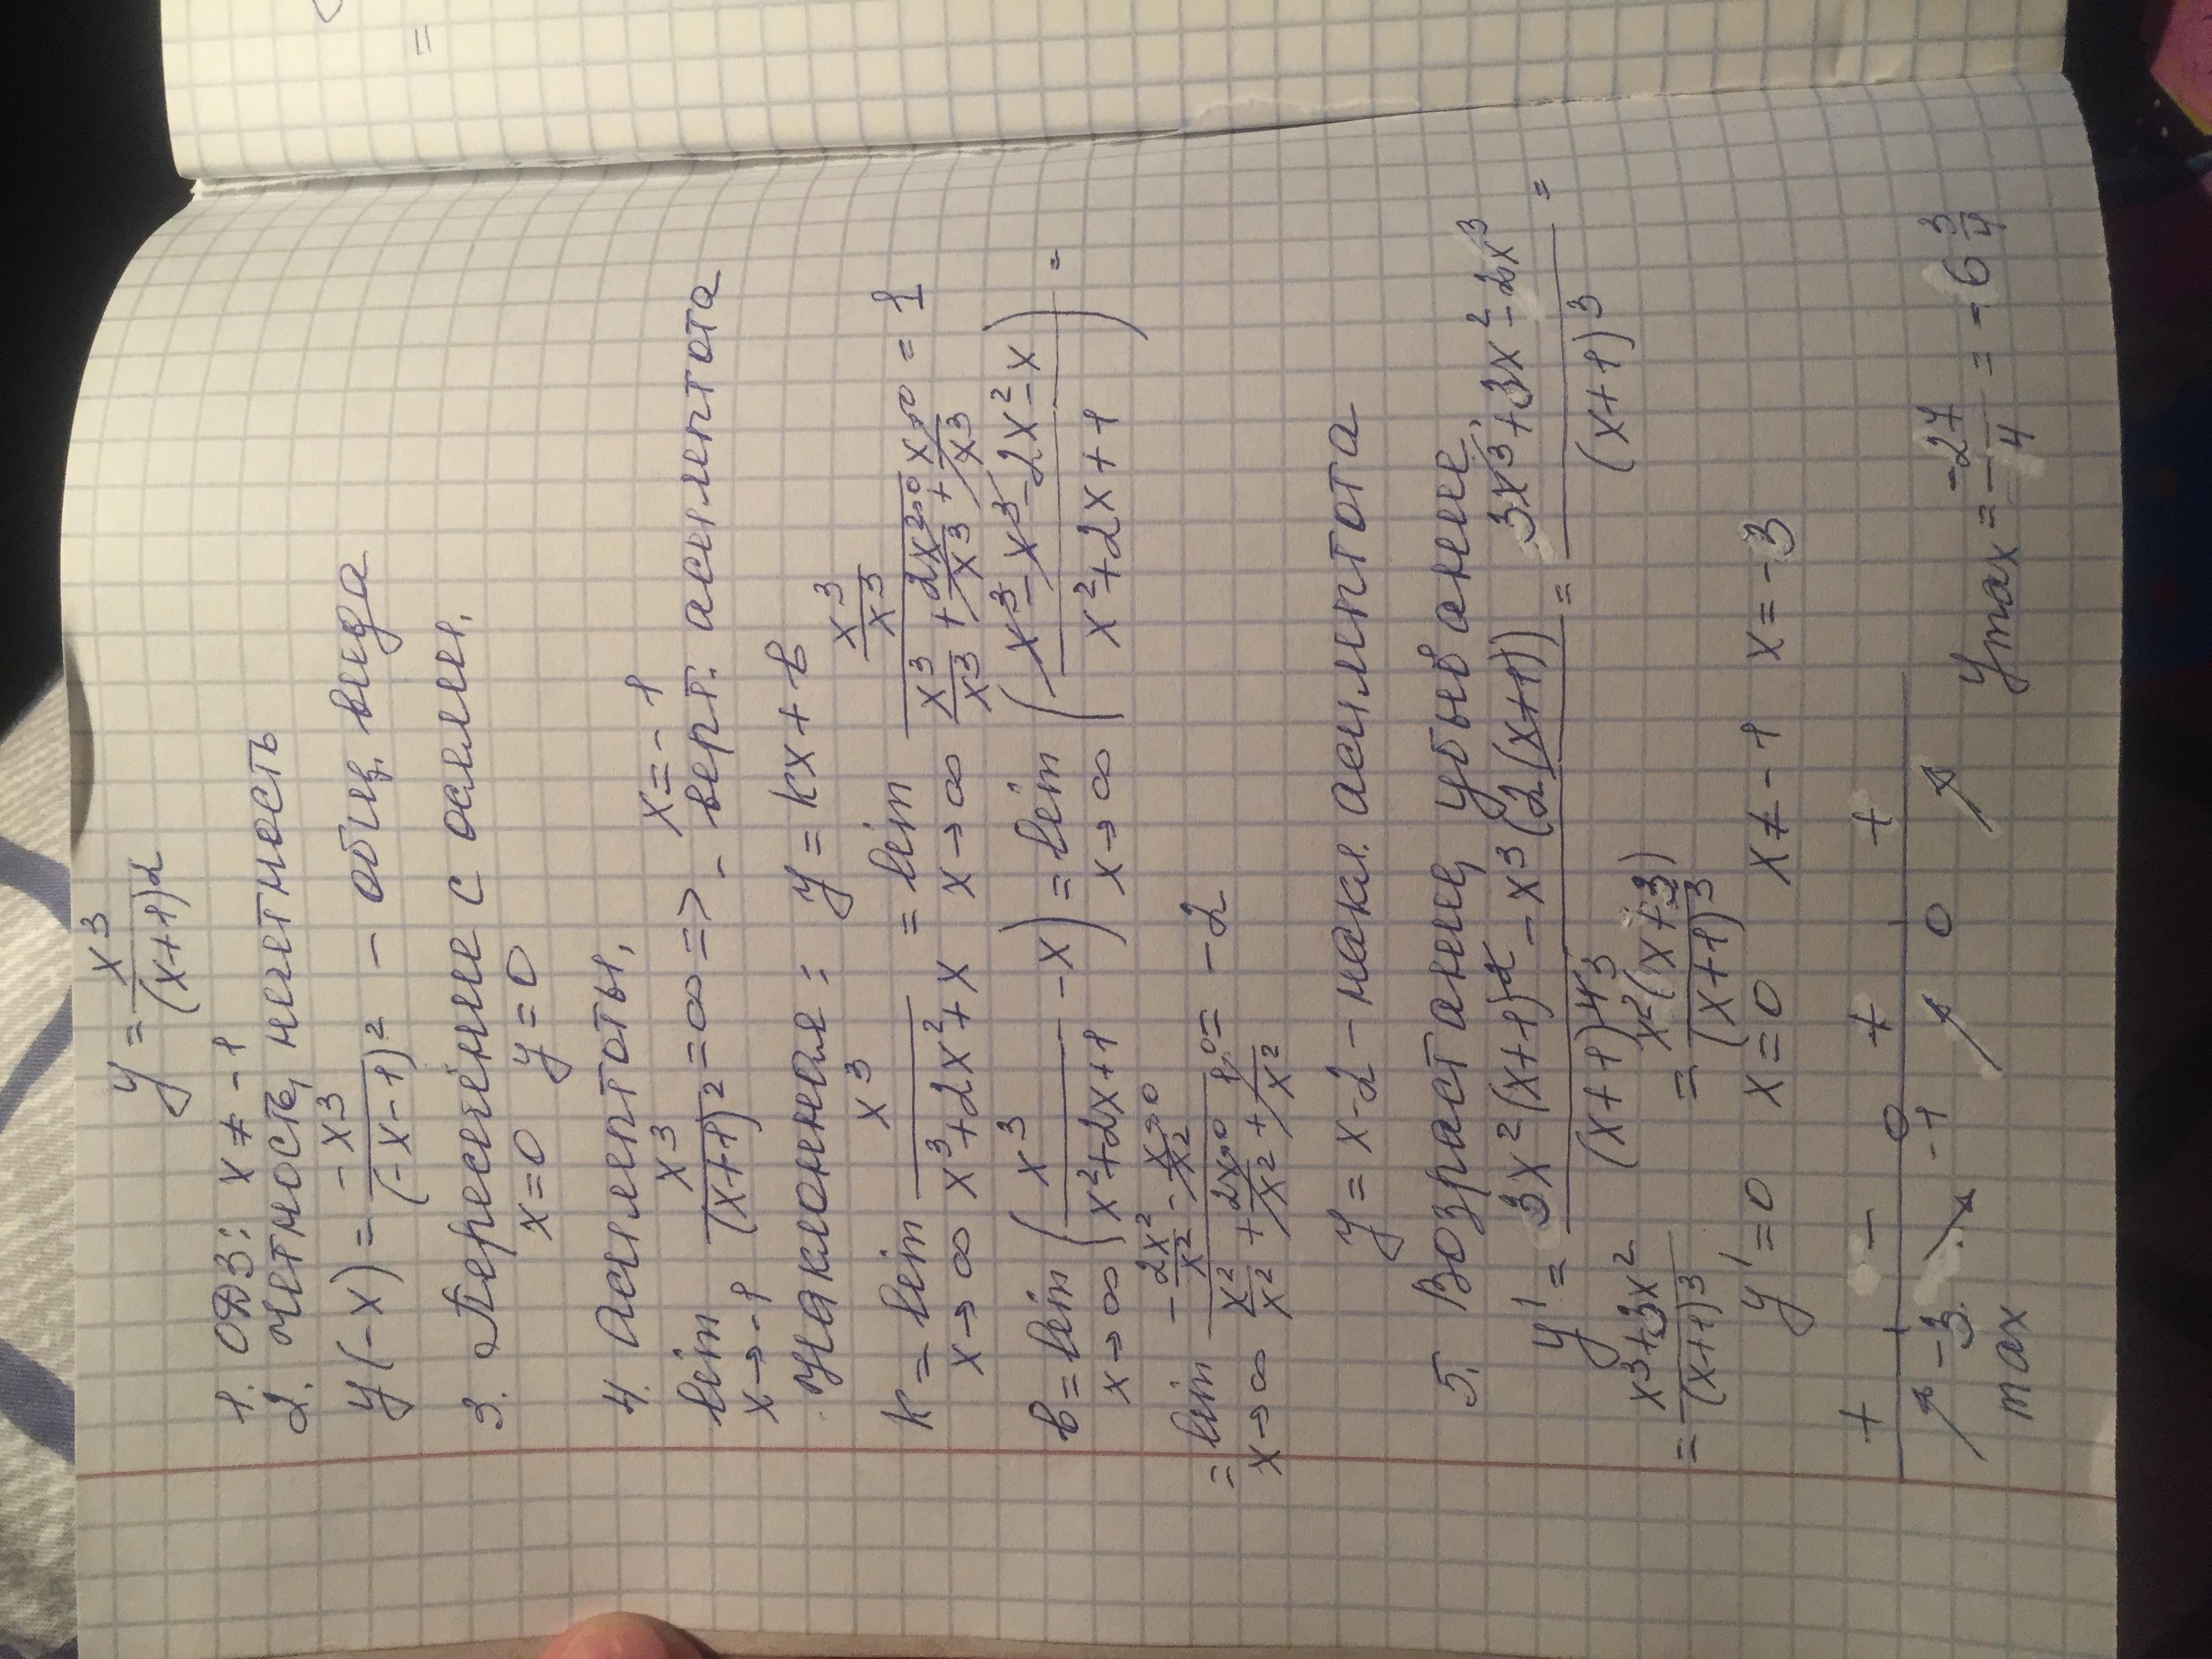 y = x³/(x+1)²
1. ОДЗ: x ≠ -1
2. Четность, нечетность
y(-x) = -x³/(-x-1)² - общ. вида
3. Пересечение с осями.
x=0 y=0
4. Асимптоты.
lim x→-1 x³/(x+1)² = ∞ => x=-1 - верт. асимптота
Наклонная: y = kx + b
k = lim x→∞ x³/(x³+2x²+x) = lim x→∞ (x³/x³)/(x³/x³ + 2x²/x³→0 + x/x³→0) = 1
b = lim x→∞ (x³/(x²+2x+1) - x) = lim x→∞ ((x³-x³-2x²-x)/(x²+2x+1)) =
= lim x→∞ (-2x²/x² - x/x²→0)/(x²/x² + 2x/x²→0 + 1/x²→0) = -2
y = x-2 - накл. асимптота
5. Возрастание, убывание.
y' = (3x²(x+1)² - x³(2(x+1)))/(x+1)⁴ ³ = (3x³+3x²-2x³)/(x+1)³ =
= (x³+3x²)/(x+1)³ = x²(x+3)/(x+1)³
y'=0 x=0 x≠-1 x=-3
+ - + +
↗ -3 ↘ -1 ↗ 0 ↗
max ymax = -27/4 = -6 3/4